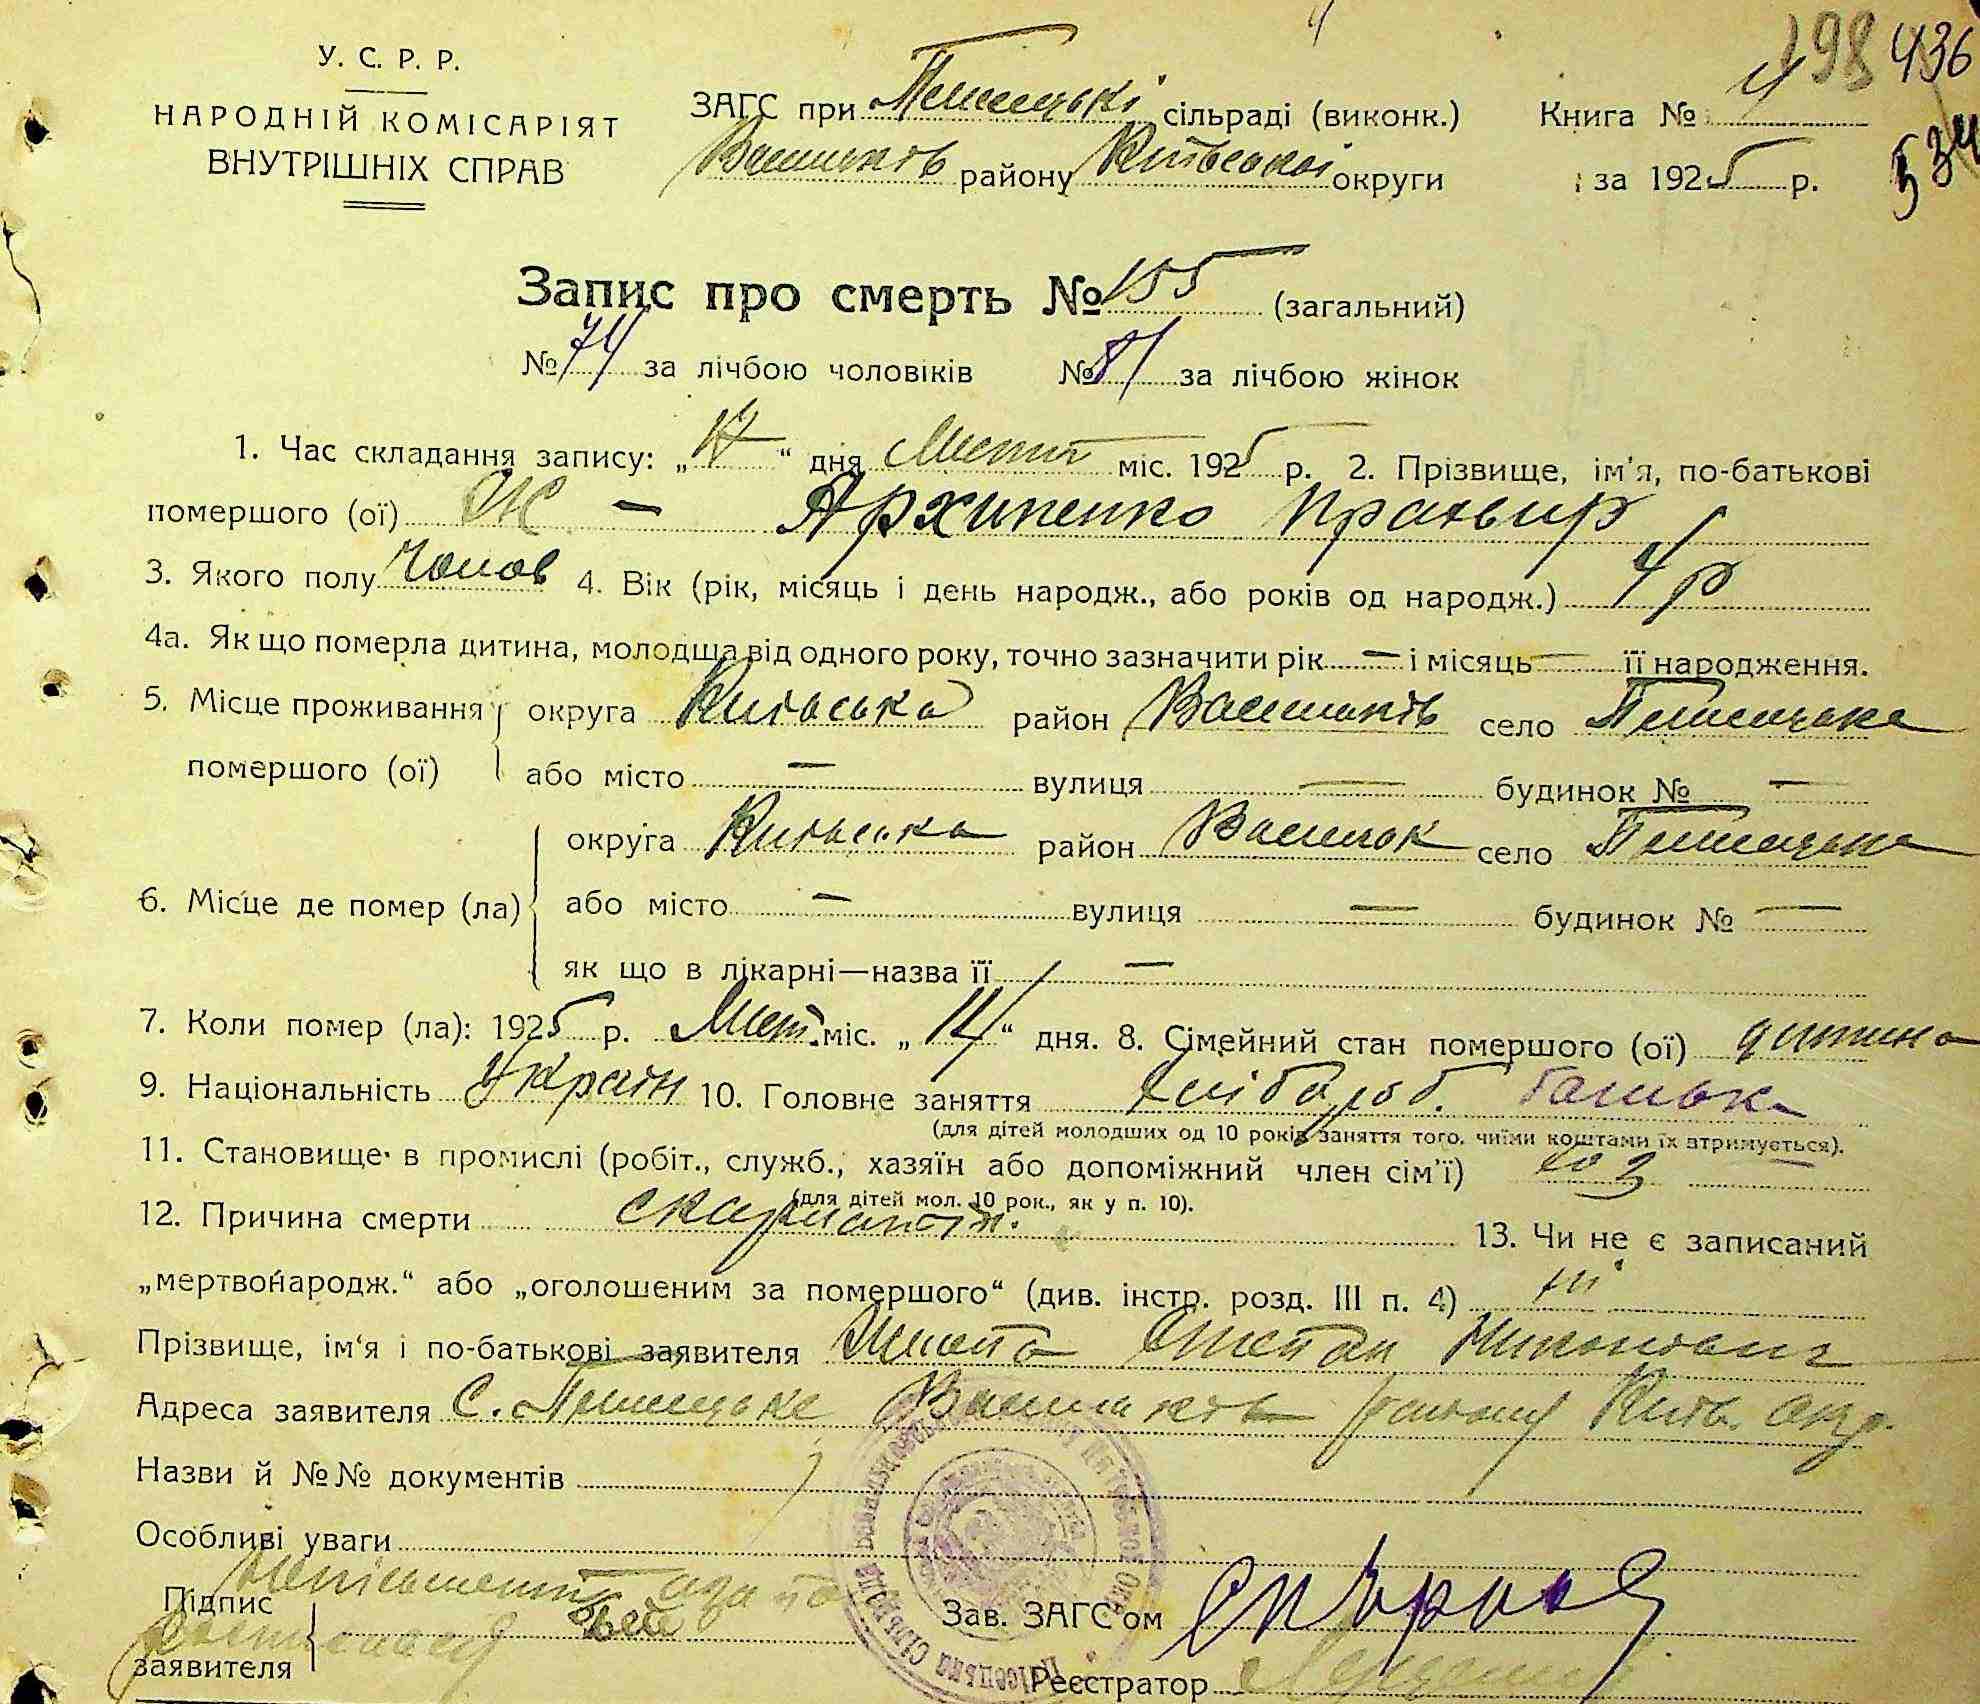 198 436
У. С. Р. Р.
НАРОДНІЙ КОМІСАРІЯТ
ВНУТРІШНІХ СПРАВ
ЗАГС при сільраді (виконк.)
району Київської округи
Книга № 4
за 1925 р.
534
Запис про смерть № 155 (загальний)
№ 74 за лічбою чоловіків № 81 за лічбою жінок
1. Час складання запису: „ “ дня Лист міс. 1925 р. 2. Прізвище, ім'я, по-батькові
помершого (ої) — Архипенко
3. Якого полу чолов 4. Вік (рік, місяць і день народж., або років од народж.) 4 р
4а. Як що померла дитина, молодша від одного року, точно зазначити рік — і місяць — її народження.
5. Місце проживання округа Київська район Васильків село Плисецьке
помершого (ої) або місто — вулиця — будинок № —
округа Київська район Васильк село Плисецьке
6. Місце де помер (ла) або місто — вулиця — будинок № —
як що в лікарні—назва її —
7. Коли помер (ла): 1925 р. Лист. міс. „14“ дня. 8. Сімейний стан помершого (ої) дитина
9. Національність Україн 10. Головне заняття хлібороб. батька
(для дітей молодших од 10 років заняття того, чиїми коштами їх втримується).
11. Становище в промислі (робіт., служб., хазяїн або допоміжний член сім'ї) хаз
(для дітей мол. 10 рок., як у п. 10).
12. Причина смерти скарлатін. 13. Чи не є записаний
„мертвонародж.“ або „оголошеним за помершого“ (див. інстр. розд. III п. 4) ні
Прізвище, ім'я і по-батькові заявителя Степан
Адреса заявителя С. Плисецьке Васильків району Київ. окр.
Назви й №№ документів
Особливі уваги
Підпис
заявителя
Зав. ЗАГС'ом
Реєстратор